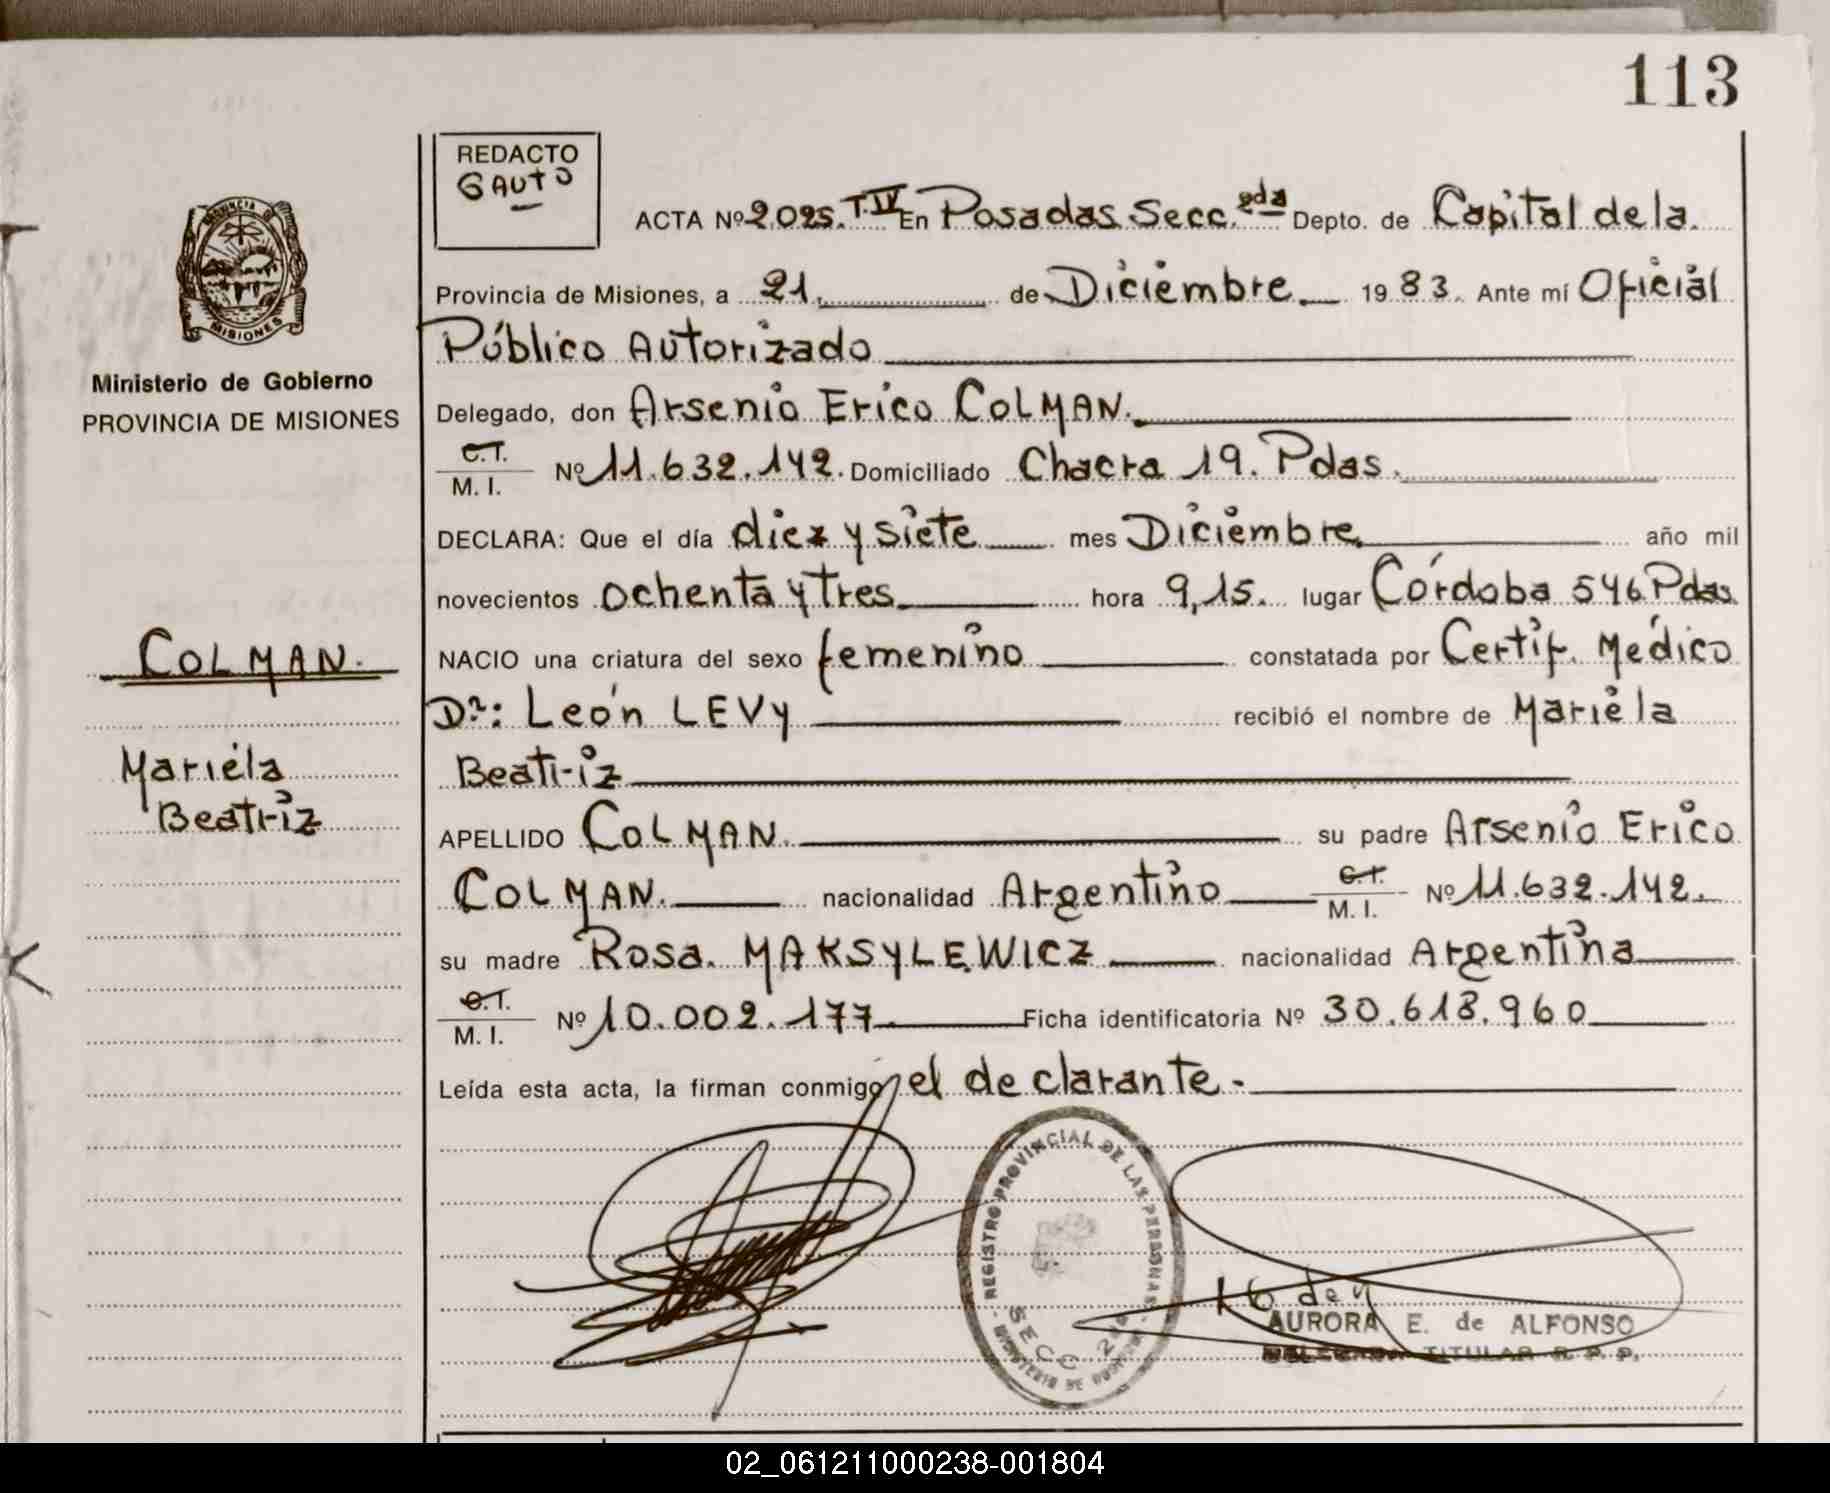 113
REDACTO
GAUTO
ACTA Nº 2.025. T.IV En Posadas Secc. 2da Depto. de Capital de la
Provincia de Misiones, a 21. de Diciembre 1983. Ante mí Oficial
Público Autorizado
Delegado, don Arsenio Erico COLMAN.
C.I.
M. I. Nº 11.632.142. Domiciliado Chacra 19. Pdas.
DECLARA: Que el día diez y siete mes Diciembre año mil
novecientos ochenta y tres hora 9,15. lugar Córdoba 546 Pdas
NACIO una criatura del sexo femenino constatada por Certif. Médico
Dr: León LEVY recibió el nombre de Mariéla
Beatriz
APELLIDO COLMAN. su padre Arsenio Erico
COLMAN. nacionalidad Argentino C.I. M. I. Nº 11.632.142.
su madre Rosa. MAKSYLEWICZ nacionalidad Argentina
C.I.
M. I. Nº 10.002.177 Ficha identificatoria Nº 30.618.960
Leída esta acta, la firman conmigo, el declarante.-
PROVINCIA DE
MISIONES
Ministerio de Gobierno
PROVINCIA DE MISIONES
COLMAN.
Mariéla
Beatriz
REGISTRO PROVINCIAL DE LAS PERSONAS
SECC 2da
MINISTERIO DE GOBIERNO
AURORA E. de ALFONSO
DELEGADA TITULAR R. P. P.
02_061211000238-001804